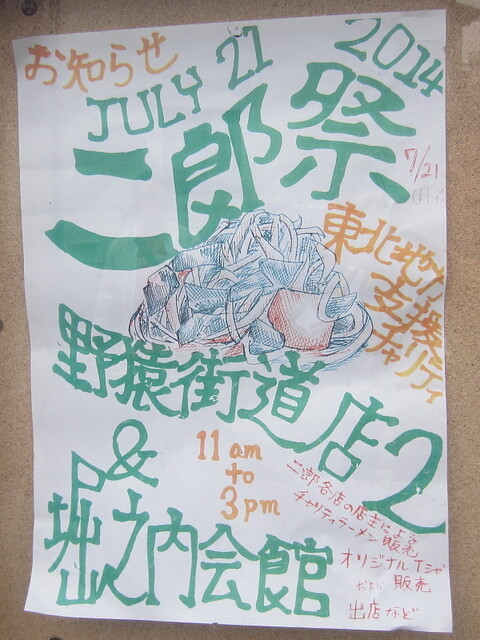 お知らせ
JULY 21 2014
二郎祭
7/21
東北地方
支援
チャリティ
野猿街道店2
&
堀之内会館
11 am
to
3 pm
二郎各店の店主による
チャリティラーメン販売
オリジナルTシャツ
販売
出店など